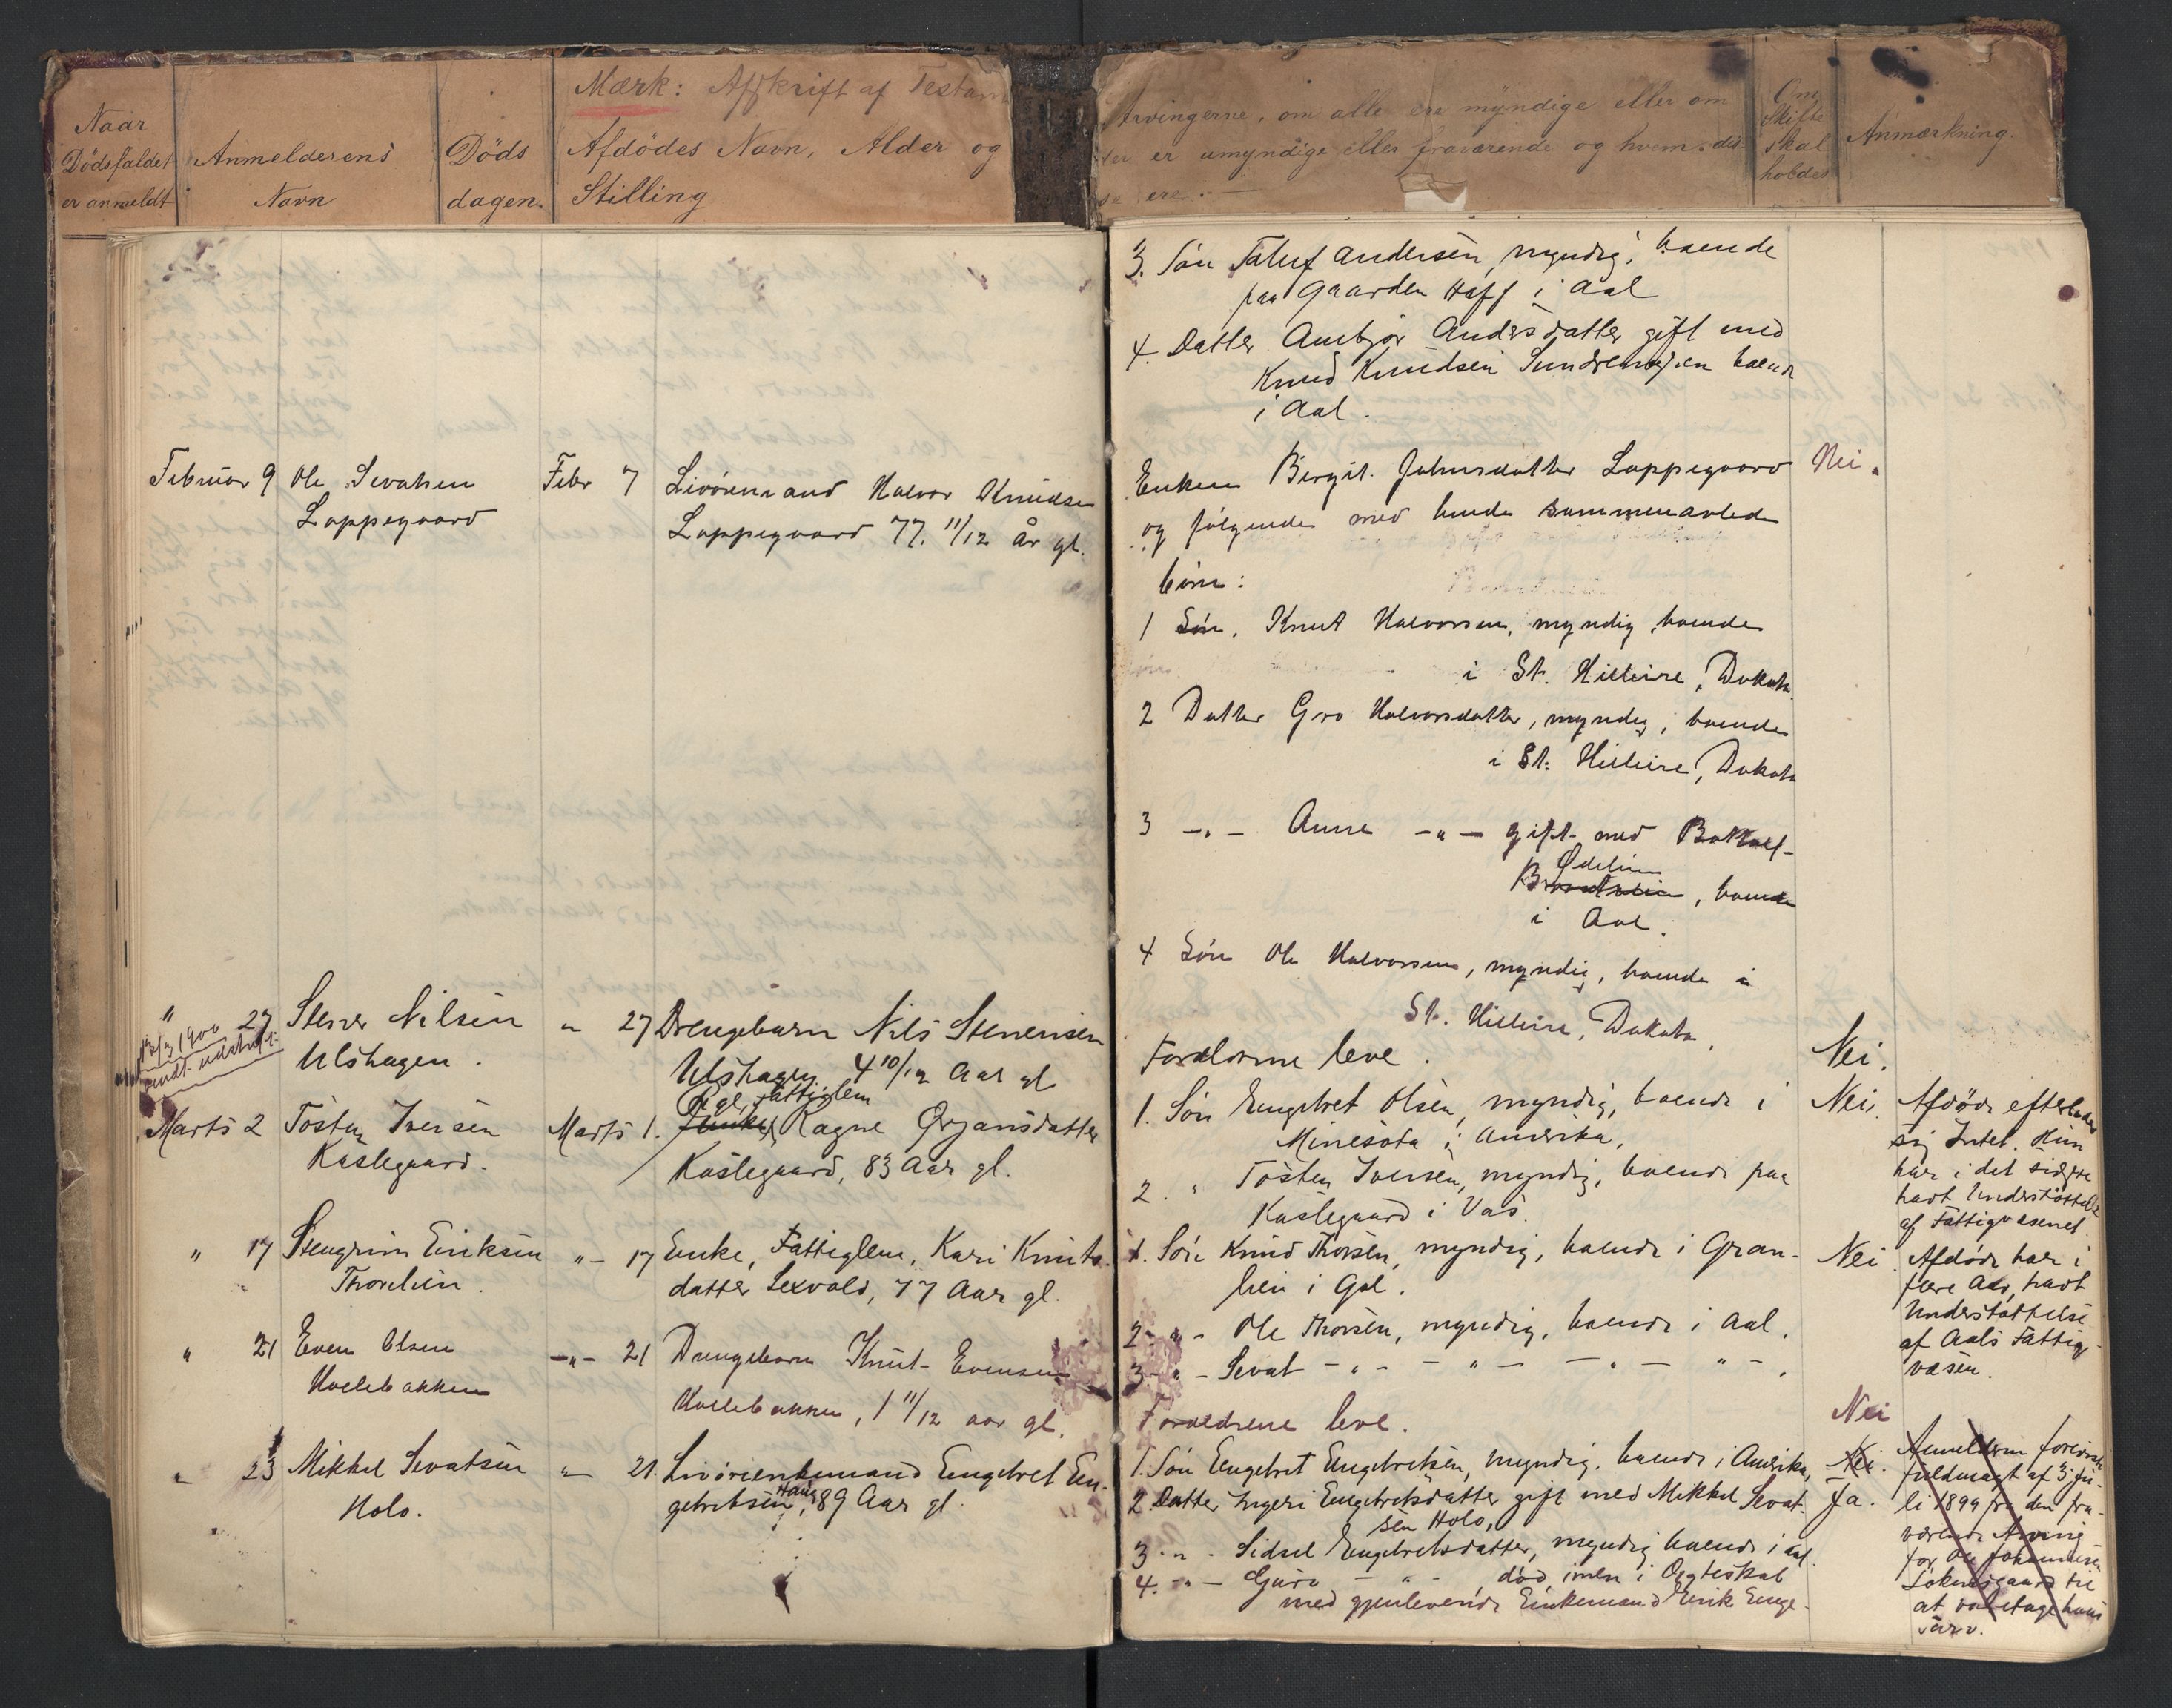 Mærk: Afskrift af Testam
Naar
Dödsfaldet
er anmeldt
Anmelderens
Navn
Döds
dagen.
Afdödes Navn, Alder og
Stilling
Arvingerne, om alle ere myndige eller om
er umyndige eller fraværende og hvem dis-
se ere.
Om
Skifte
skal
holdes
Anmærkning.
3. Søn Andersen, myndig, boende
paa Gaarden Hoff i Aal
4. Datter Ambjør Andersdatter gift med
Knud Knudsen boende
i Aal.
Februar 9 Ole Sevatsen
Loppegaard
Febr 7
Livörenmand Halvor Knudsen
Loppegaard 77. 11/12 År gl.
Enken Birgit Johnsdatter Loppegaard
og følgende med hende sammenavlede
börn:
Nei.
1 Søn, Knut Halvorsen, myndig, boende
i St. Hilleire, Dakota
2 Datter Gro Halvorsdatter, myndig, boende
i St. Hilleire, Dakota
3 -"- Anne -"- gift med Botolf
Ødelien
, boende
i Aal.
4 Søn Ole Halvorsen, myndig, boende i
St. Hilleire, Dakota.
" 27 Stener Nilsen
Ulshagen.
13/3 1900
sendt udskrift.
" 27 Drengebarn Nils Stenersen
Ulshagen 4 10/12 Aar gl
Forældrene leve.
Nei.
Marts 2 Tosten Iversen
Kaslegaard.
Marts 1.
Pige, Fattiglem
Enke, Ragne Ørjansdatter
Kaslegaard, 83 Aar gl.
1. Søn Engebret Olsen, myndig, boende i
Minesota i Amerika,
2. " Tosten Iversen, myndig, boende paa
Kaslegaard i Vas.
Nei.
Afdøde efterlader
sig Intet. Hun
har i det sidste
havt Understøttelse
af Fattigvæsenet.
" 17 Stengrim Eriksen
Thorelien.
"- 17 Enke, Fattiglem, Kari Knuts-
datter Sexvold, 77 Aar gl.
1. Søn Knud Thorsen, myndig, boende i Gran-
lien i Gol.
2-"- Ole Thorsen, myndig, boende i Aal.
3-"- Sevat -"- -"- -"- "-.
Nei.
Afdøde har i
flere Aar, havt
Understøttelse
af Aals Fattig-
væsen.
" 21 Even Olsen
Hoelebakken
-"- 21 Drengebarn Knut Evensen
Hoelebakken, 1 11/12 aar gl.
Forældrene leve.
Nei
" 23 Mikkel Sevatsen
Holo.
"- 21. Livörenkemand Engebret En-
gebretsen Haug, 89 Aar gl.
1. Søn Engebret Engebretsen, myndig, boende i Amerika,
2. Datter Ingeri Engebretsdatter gift med Mikkel Sevat-
sen Holo,
3.-"- Sidsel Engebretsdatter, myndig boende i Aal.
4.-"- Guro -"- død men i Ægteskab
med gjenlevende Enkemand Eirik Enge-
Nei.
Ja.
Anmelderen foreviste
fuldmagt af 3 Ju-
li 1899 fra den fra-
værende Arving
for Ole Johannesen
til
at varetage hans
Tarv.